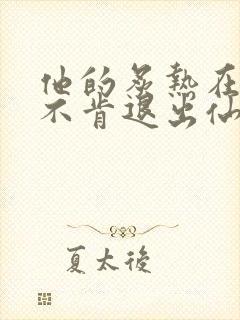 他的炙熱在
不肯退出仙
夏太後